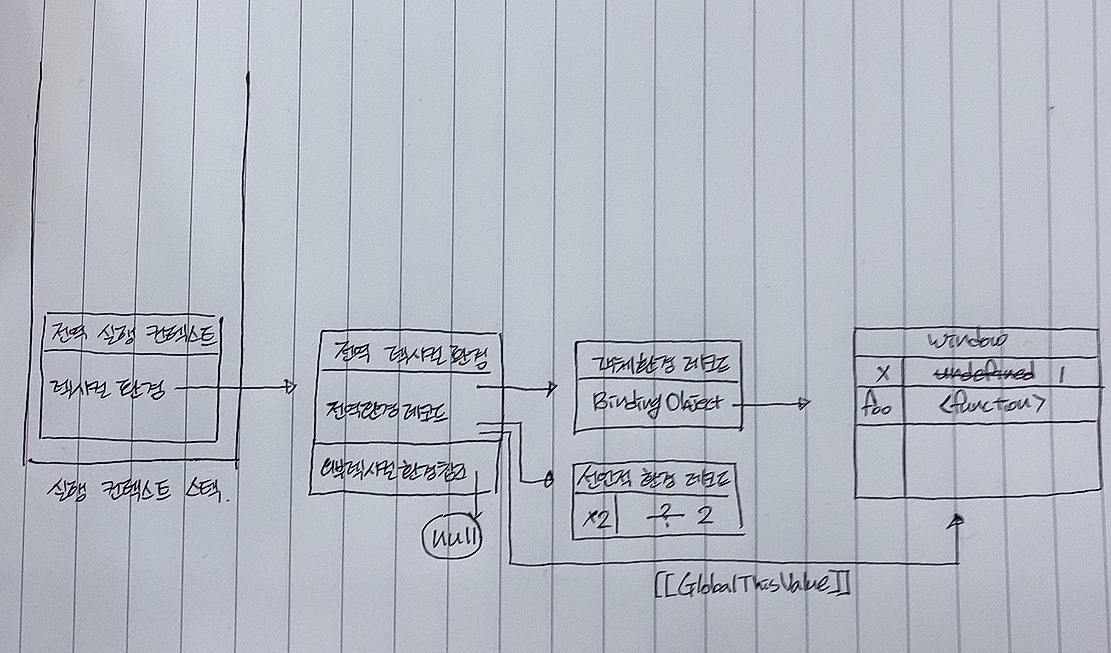 전역 실행 컨텍스트
렉시컬 환경
실행 컨텍스트 스택.
전역 렉시컬 환경
전역환경 레코드
외부렉시컬환경참조
null
객체환경 레코드
Binding Object
선언적 환경 레코드
x2 ? 2
[[GlobalThisValue]]
window
x undefined 1
foo <function>